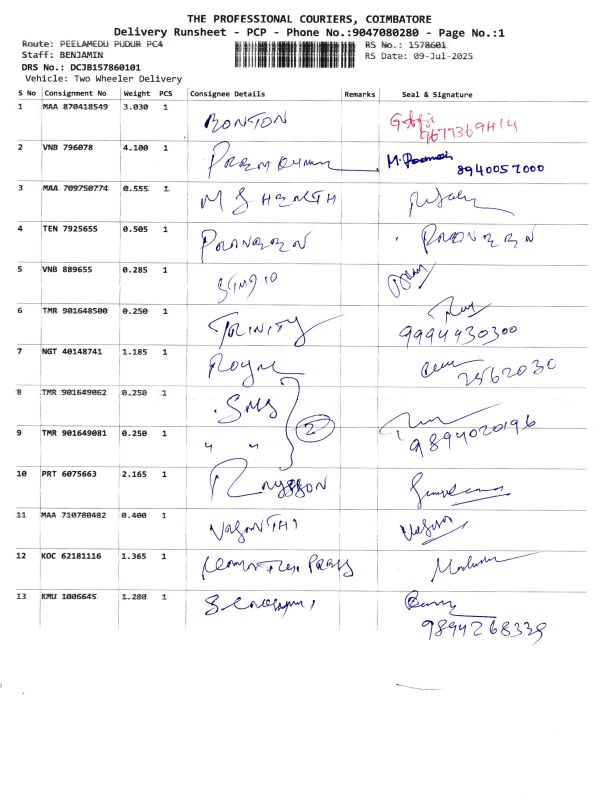 THE PROFESSIONAL COURIERS, COIMBATORE
Delivery Runsheet - PCP - Phone No.:9047080280 - Page No.:1
Route: PEELAMEDU PUDUR PC4
RS No.: 1578601
Staff: BENJAMIN
RS Date: 09-Jul-2025
DRS No.: DCJB157860101
Vehicle: Two Wheeler Delivery
S No Consignment No Weight PCS Consignee Details Remarks Seal & Signature
1 MAA 870418549 3.030 1 BONTON
2 VNB 796078 4.100 1 8940057000
3 MAA 709750774 0.555 1 M S HEALTH
4 TEN 7925655 0.505 1
5 VNB 889655 0.285 1
6 TMR 901648500 0.250 1 TRINITY 9994930300
7 NGT 40148741 1.185 1 2562030
8 TMR 901649062 0.250 1 SMS
2
9 TMR 901649081 0.250 1 " " 9894020196
10 PRT 6075663 2.165 1
11 MAA 710780482 0.400 1 VASANTHI
12 KOC 62181116 1.365 1
13 KMU 1006645 1.280 1
9894268339